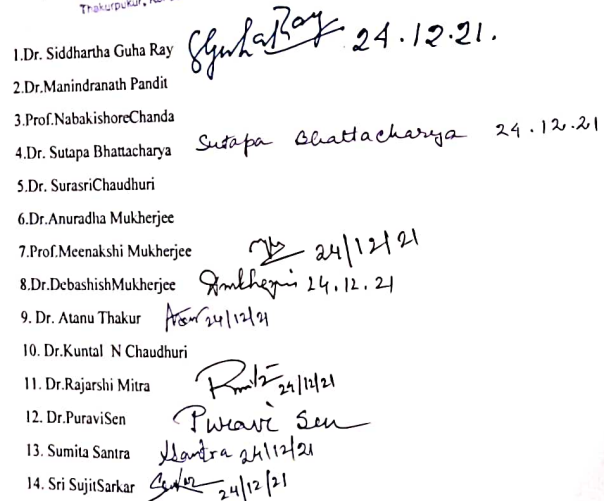 Thakurpukur,
1.Dr. Siddhartha Guha Ray SGuhaRay 24.12.21.
2.Dr.Manindranath Pandit
3.Prof.NabakishoreChanda
4.Dr. Sutapa Bhattacharya Sutapa Bhattacharya 24.12.21
5.Dr. SurasriChaudhuri
6.Dr.Anuradha Mukherjee
7.Prof.Meenakshi Mukherjee 24/12/21
8.Dr.DebashishMukherjee 24.12.21
9. Dr. Atanu Thakur 24/12/21
10. Dr.Kuntal N Chaudhuri
11. Dr.Rajarshi Mitra 24/12/21
12. Dr.PuraviSen Puravi Sen
13. Sumita Santra SSantra 24/12/21
14. Sri SujitSarkar 24/12/21